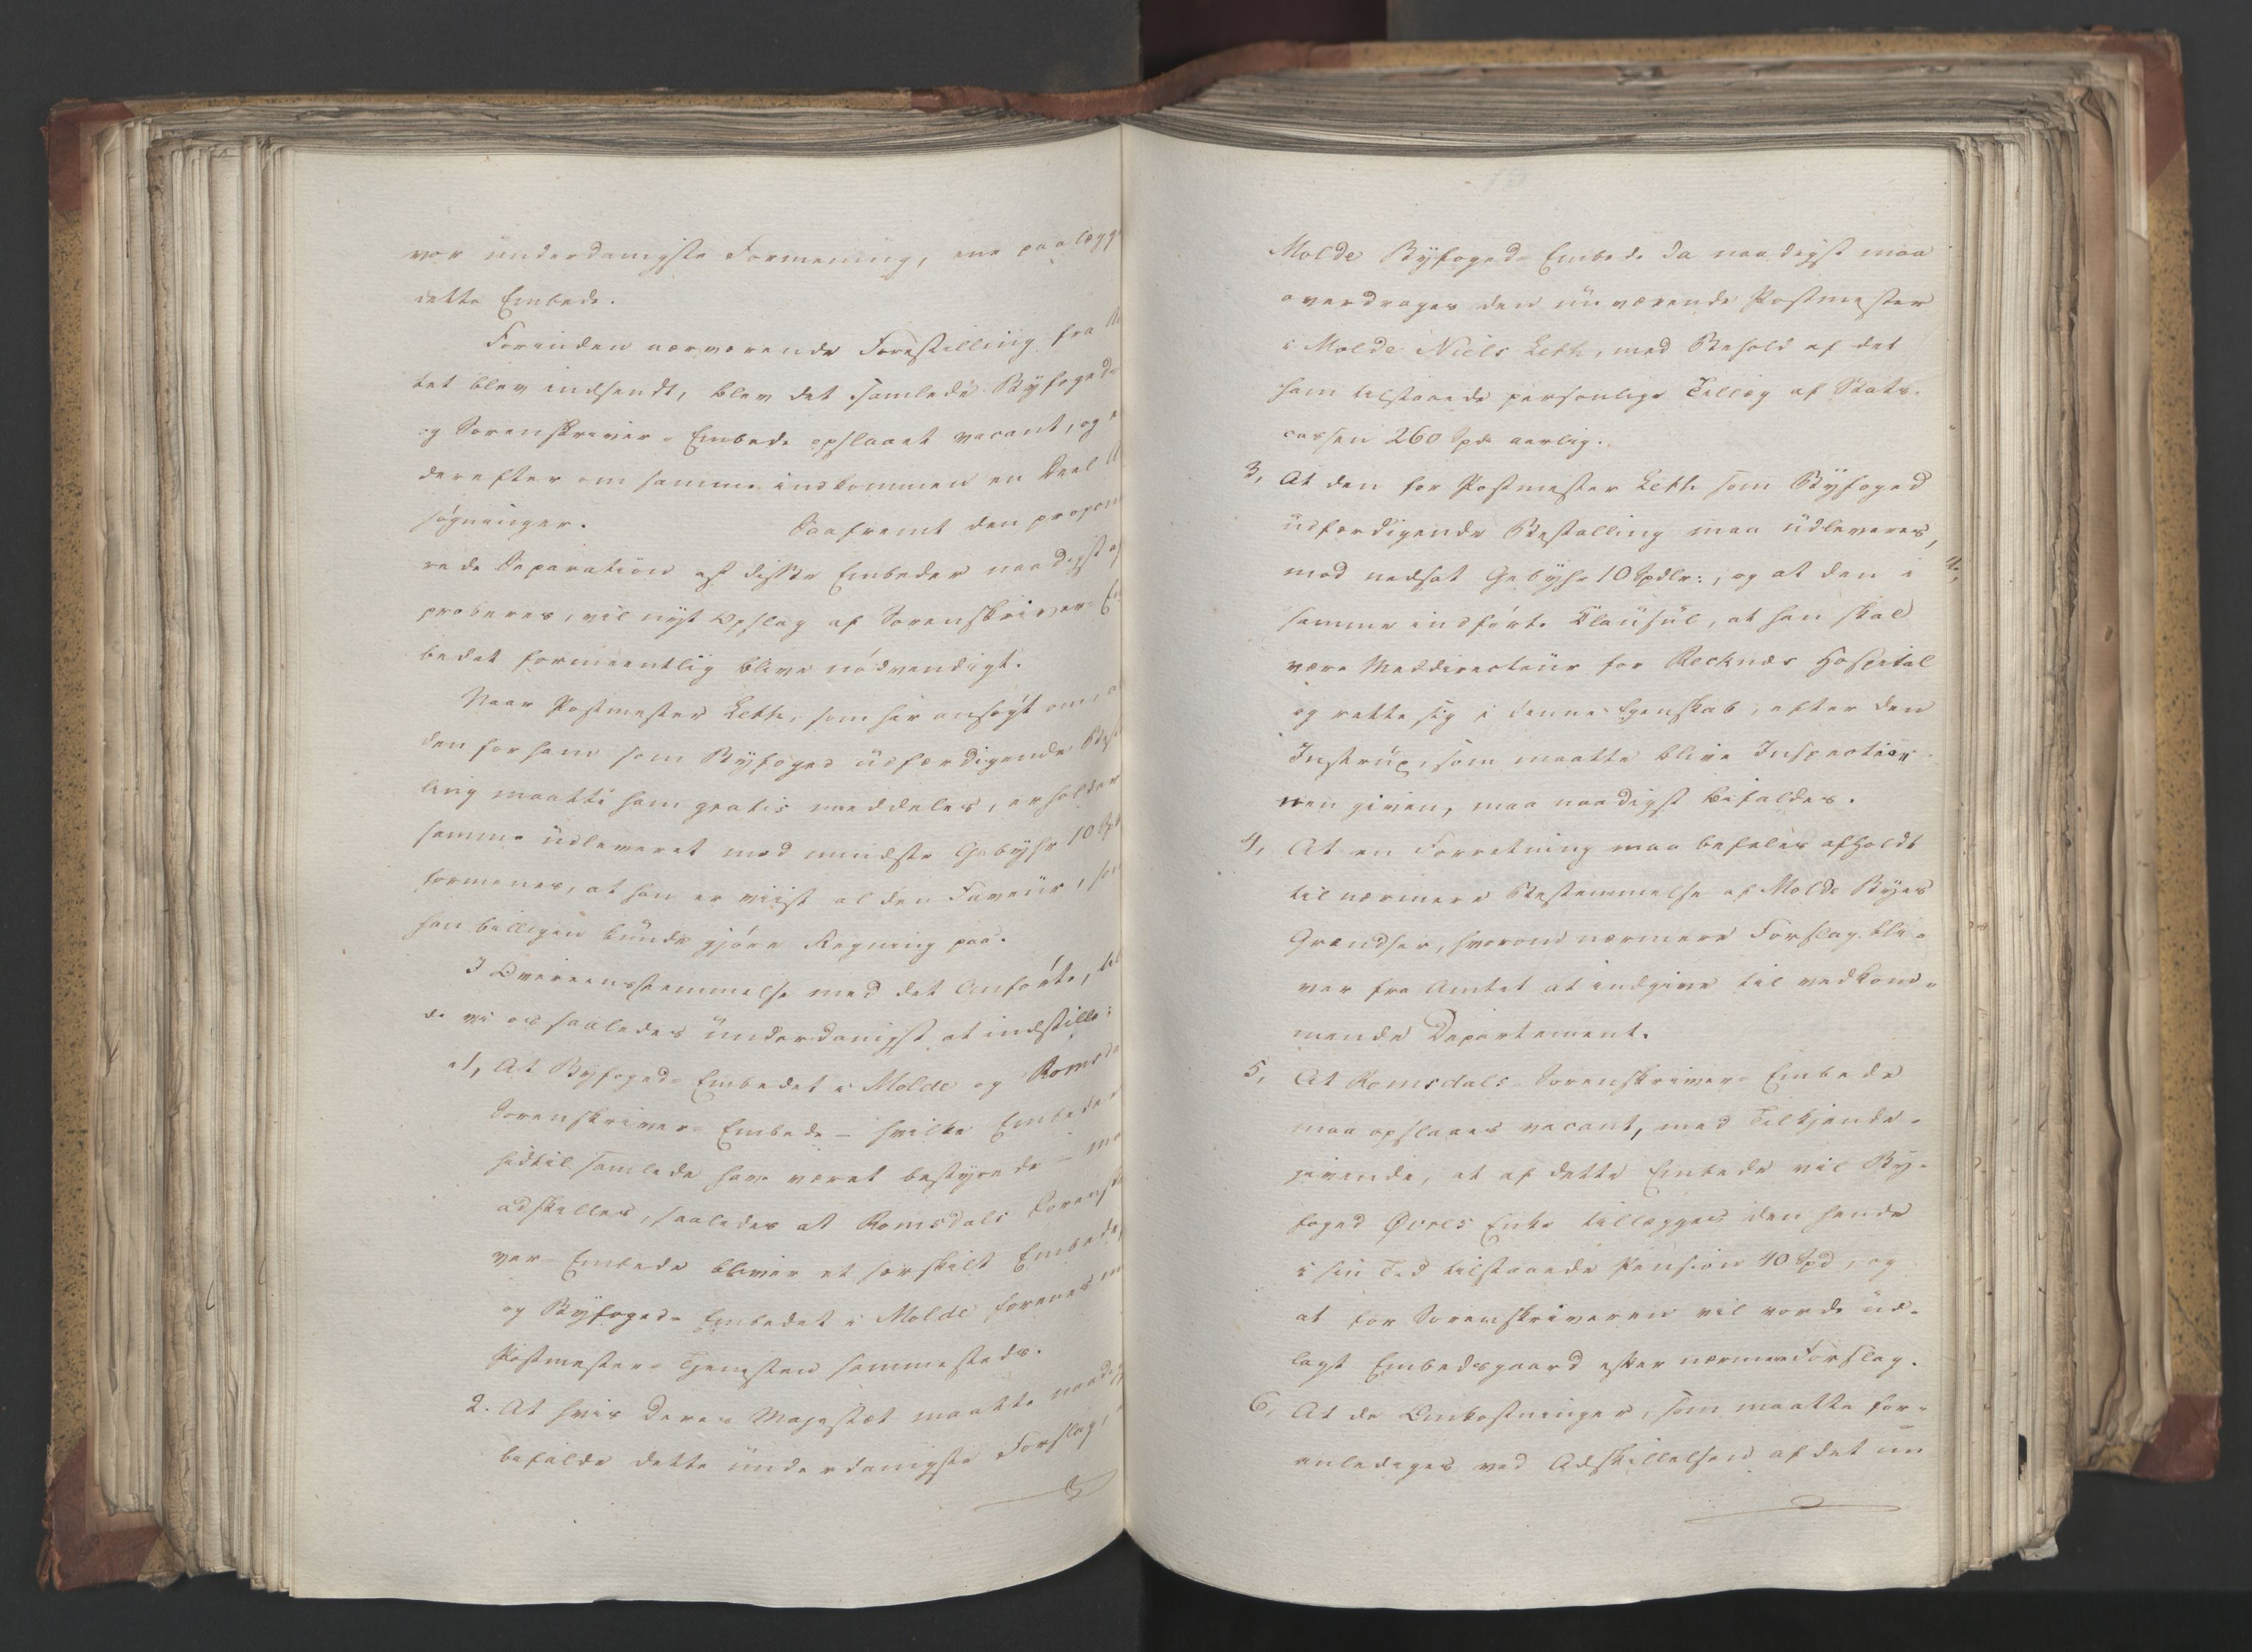 vor underdanigste Formening, ene paalægge
dette Embede.
Forinden nærværende Forestilling fra
tet blev indsendt, blev det samlede Byfoged-
og Sorenskriver-Embede opslaaet vacant, og
derefter om samme indkommen en Deel
søgninger. Saafremt den propone
rede Separation af disse Embeder naadigst
proberes, vil nyt Opslag af Sorenskriver-
bedet formeentlig blive nødvendigt.
Naar Postmester Leth, som har ansøgt om,
den for ham som Byfoged udfærdigende
ling maatte ham gratis meddeles, erholder
samme udleveret mod mindste Gebyhr 10
formenes, at han er viist al den Faveur,
han billigen kunde gjøre Regning paa.
I Overeensstemmelse med det Anførte,
de vi os saaledes underdanigst at indstille:
1, At Byfoged-Embedet i Molde og Romsda
Sorenskriver-Embede – hvilke Embeder
hidtil samlede have været bestyrede –
adskilles, saaledes at Romsdals Sorenskri
ver-Embede bliver et særskilt Embede,
og Byfoged-Embedet i Molde forenes
Postmester-Tjenesten sammesteds.
2. At hvis Deres Majestæt maatte naadigst
bifalde dette underdanigste Forslag,
Molde Byfoged-Embede da naadigst maa
overdrages den nuværende Postmester
i Molde Niels Leth, med Behold af det
ham tilstaaede personlige Tillæg af Stats-
cassen 260 Spd. aarlig.
3, At den for Postmester Leth som Byfoged
udfærdigende Bestalling maa udleveres,
mod nedsat Gebyhr 10 Spdlr:, og at den i
samme indførte Clausul, at han skal
være Meddirecteur for Recknes Hospital
og rette sig i denne Egenskab, efter den
Instrux, som maatte blive Inspection
nen given, maa naadigst bifaldes.
4, At en Forretning maa befales afholdt
til nærmere Bestemmelse af Molde Byes
Grændser, hvorom nærmere Forslag bli-
ver fra Amtet at indgive til vedkom-
mende Departement.
5, At Romsdals Sorenskriver-Embede
maa opslaaes vacant, med Tilkjende-
givende, at af dette Embede vil By-
foged Øvres Enke tillægges den hende
i sin Tid tilstaaede Pension 40 Spd, og
at for Sorenskriveren vil vorde ud-
lagt Embedsgaard efter nærmere Forslag.
6, At de Omkostninger, som maatte for-
anlediges ved Adskillelsen af det nu